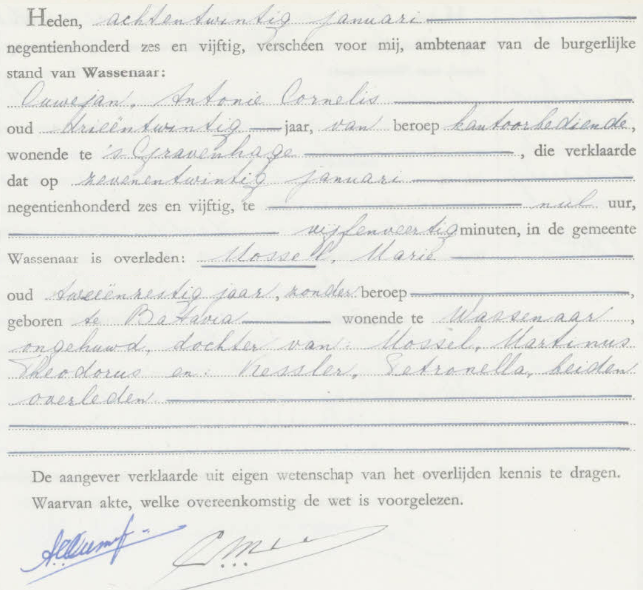 Heden, achtentwintig januari
negentienhonderd zes en vijftig, verscheen voor mij, ambtenaar van de burgerlijke
stand van Wassenaar:
Ouwejan, Antonie Cornelis
oud drieëntwintig jaar, van beroep kantoorbediende,
wonende te 's Gravenhage, die verklaarde
dat op zevenentwintig januari
negentienhonderd zes en vijftig, te nul uur,
vijfenveertig minuten, in de gemeente
Wassenaar is overleden: Mossel, Marie
oud tweeënzestig jaar, zonder beroep,
geboren te Batavia wonende te Wassenaar,
ongehuwd, dochter van: Mossel, Martinus
Theodorus en: Kessler, Petronella, beiden
overleden
De aangever verklaarde uit eigen wetenschap van het overlijden kennis te dragen.
Waarvan akte, welke overeenkomstig de wet is voorgelezen.